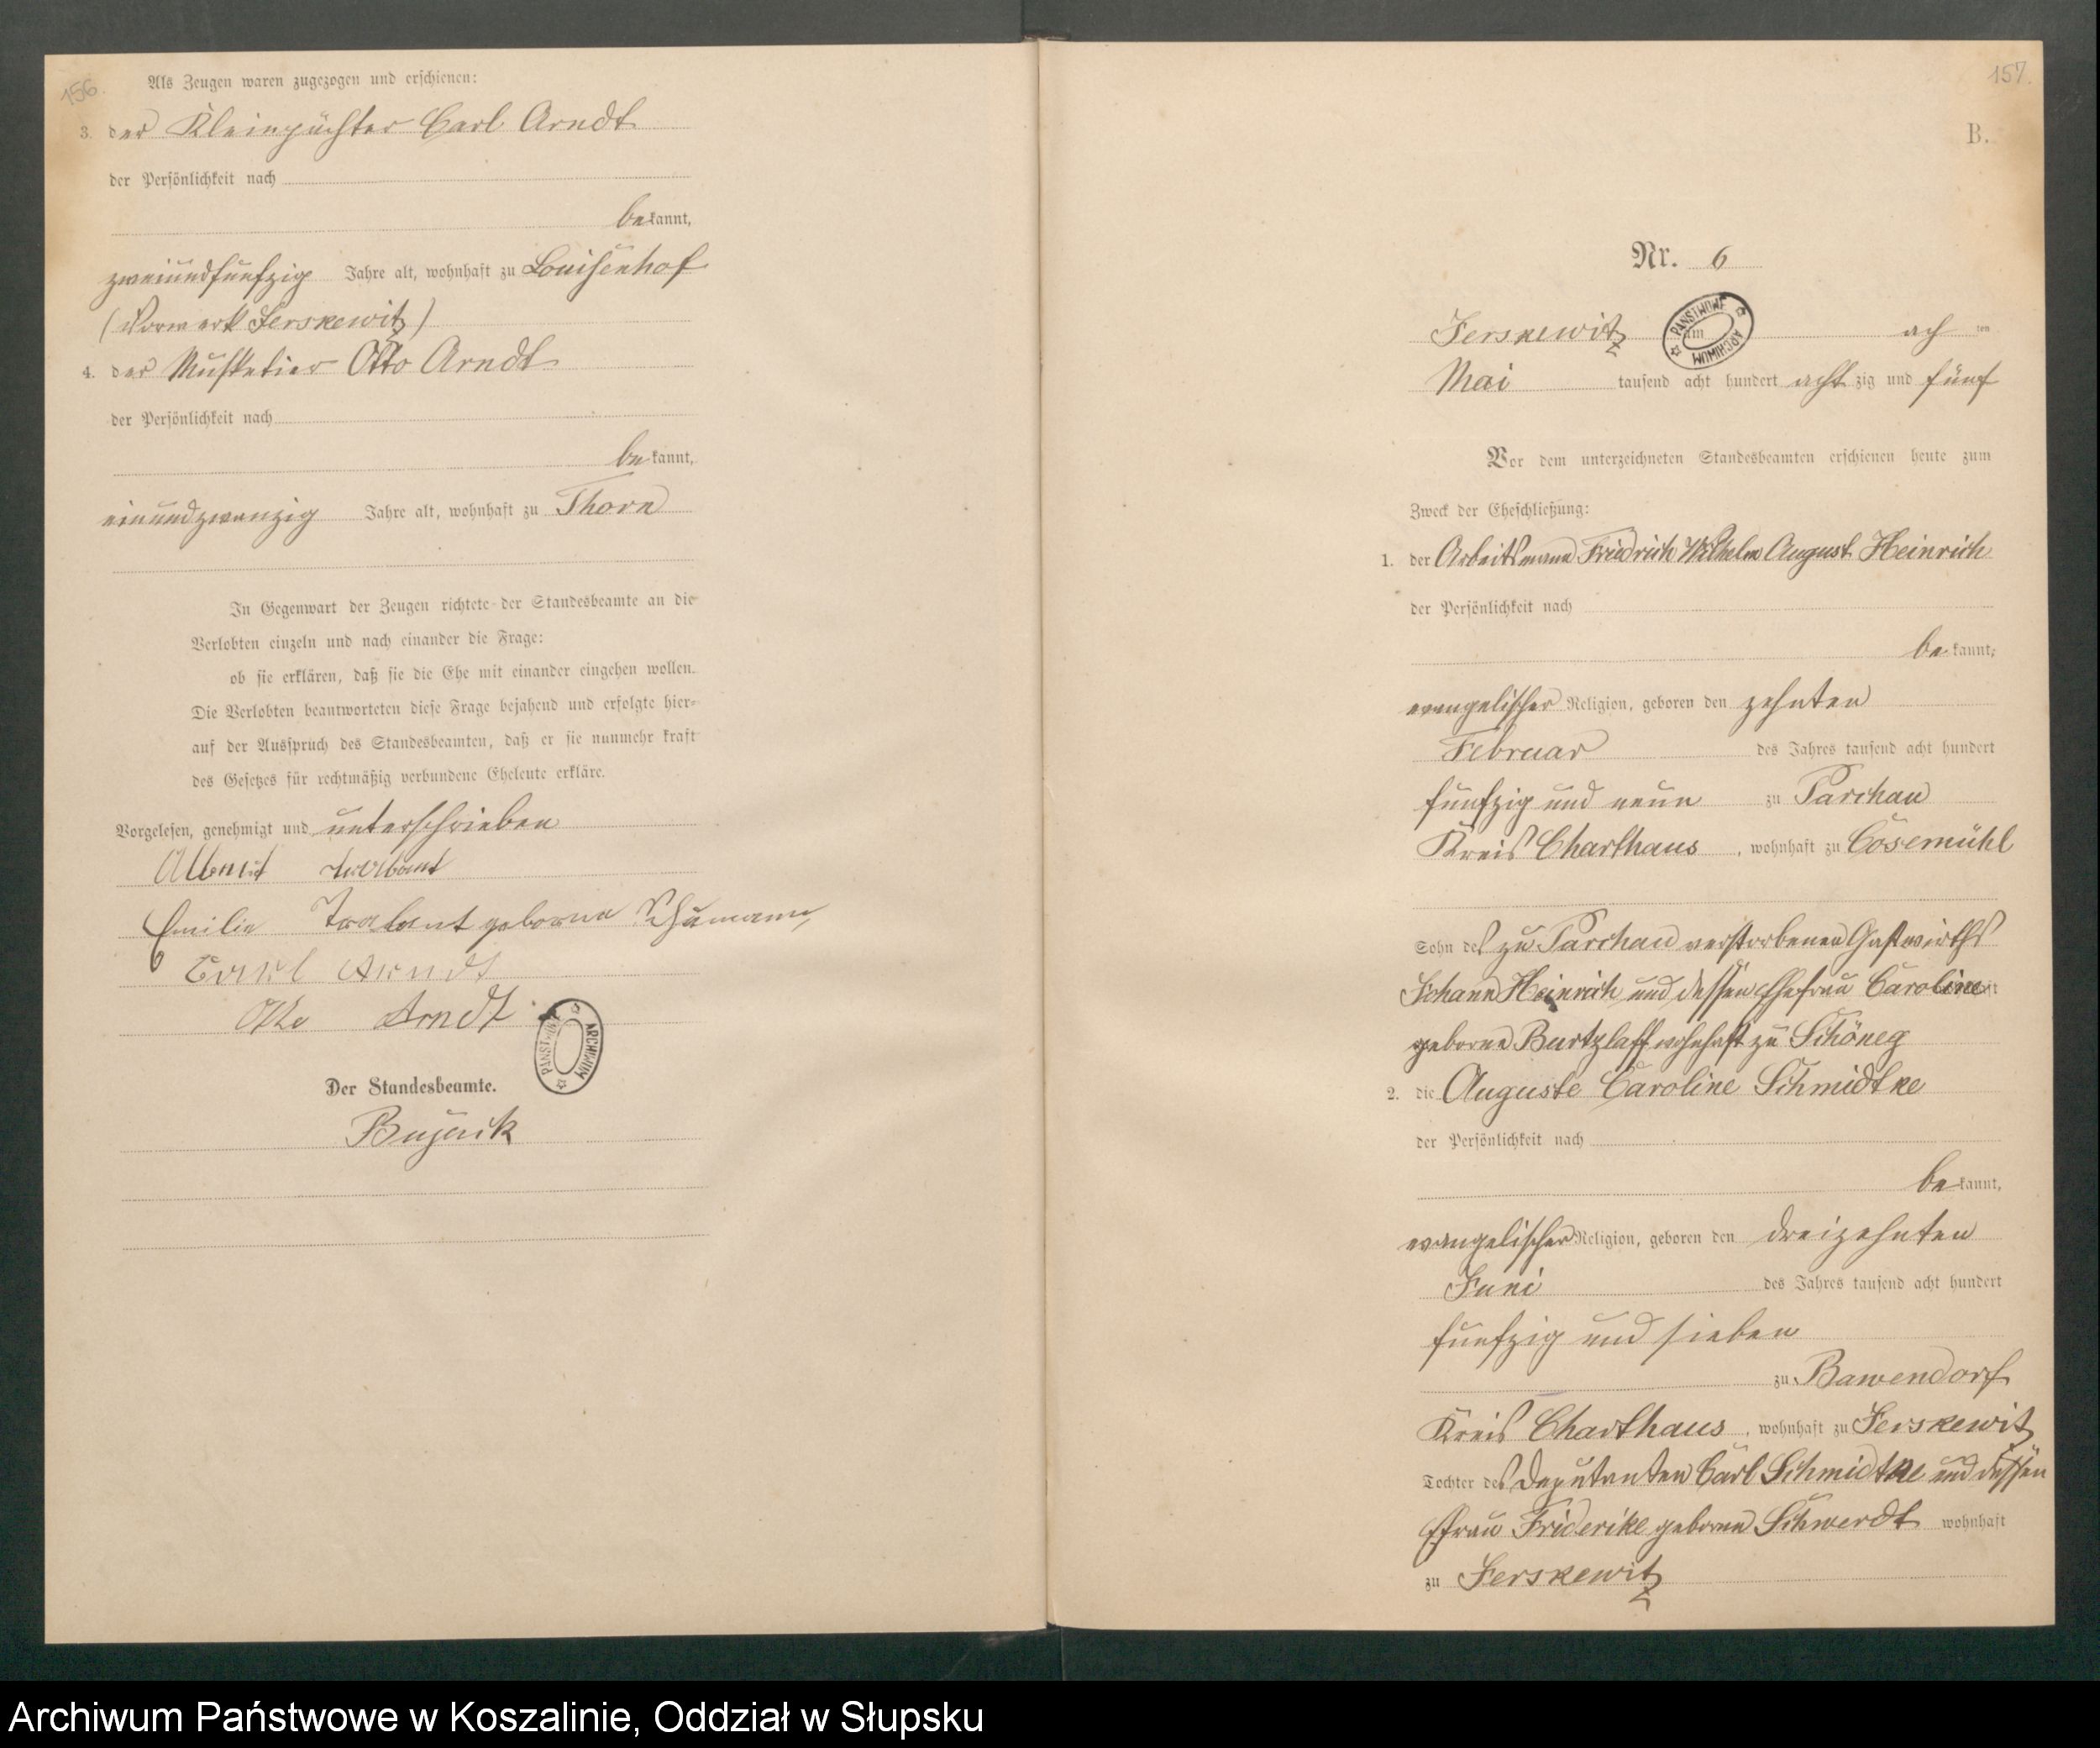 156.
Als Zeugen waren zugezogen und erschienen:
3. der Kleinpächter Carl Arndt
der Persönlichkeit nach
bekannt,
zweiundfünfzig Jahre alt, wohnhaft zu Louisenhof
(Vorwerk Jerskewitz)
4. der Musketier Otto Arndt
der Persönlichkeit nach
bekannt,
einundzwanzig Jahre alt, wohnhaft zu Thorn
In Gegenwart der Zeugen richtete der Standesbeamte an die
Verlobten einzeln und nach einander die Frage:
ob sie erklären, daß sie die Ehe mit einander eingehen wollen.
Die Verlobten beantworteten diese Frage bejahend und erfolgte hier-
auf der Ausspruch des Standesbeamten, daß er sie nunmehr kraft
des Gesetzes für rechtmäßig verbundene Eheleute erkläre.
Vorgelesen, genehmigt und unterschrieben
Emilie Trabant geborne Schumann
Carl Arndt
Otto Arndt
PANSTWOWE ARCHIWUM
Der Standesbeamte.
157.
B.
Nr. 6
Jerskewitz am acht ten
PANSTWOWE ARCHIWUM
Mai tausend acht hundert acht zig und fünf
Vor dem unterzeichneten Standesbeamten erschienen heute zum
Zweck der Eheschließung:
1. der Arbeitsmann Friedrich Wilhelm August Heinrich
der Persönlichkeit nach
bekannt,
evangelischer Religion, geboren den zehnten
Februar des Jahres tausend acht hundert
fünfzig und neun zu Parchau
Kreis Charthaus, wohnhaft zu Cösemühl
Sohn des zu Parchau verstorbenen Gastwirths
Johann Heinrich und dessen Ehefrau Caroline
geborne Burtzlaff wohnhaft zu Schöneg
2. die Auguste Caroline Schmidtke
der Persönlichkeit nach
bekannt,
evangelischer Religion, geboren den dreizehnten
Juni des Jahres tausend acht hundert
fünfzig und sieben
zu Bawendorf
Kreis Charthaus, wohnhaft zu Jerskewitz
Tochter des Deputanten Carl Schmidtke und dessen
Efrau Friderike geborne Schwerdt wohnhaft
zu Jerskewitz
Archiwum Państwowe w Koszalinie, Oddział w Słupsku